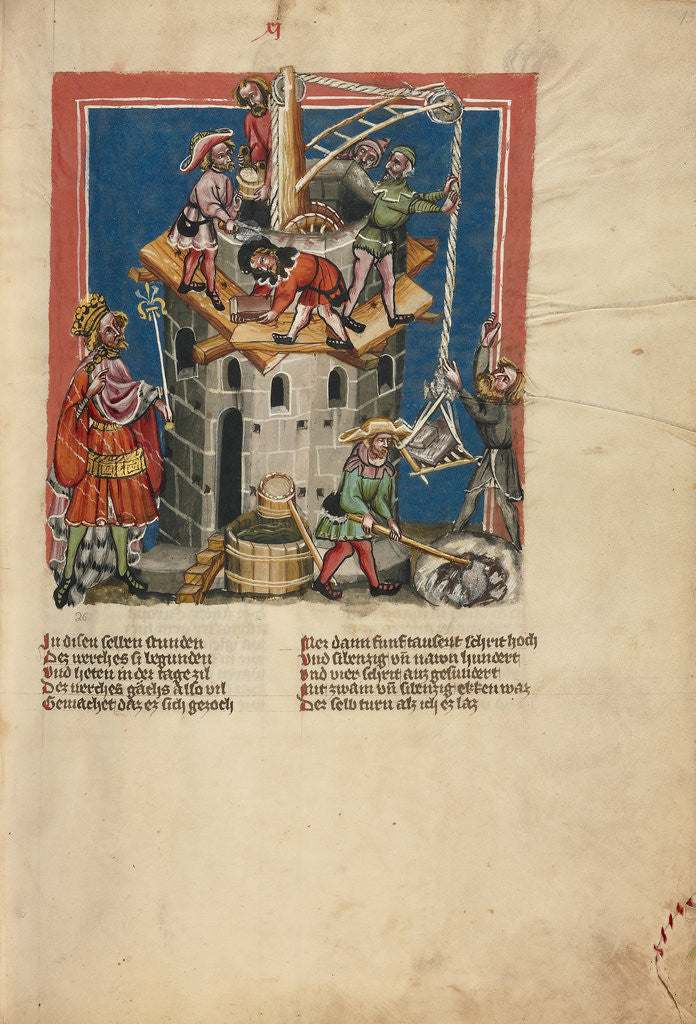 xj
13
26
In disen selben stunden
Des werches si begunden
Und heten in der tage zil
Des werches gaehs also vil
Gemachet daz er sich gezoch
Mer dann funf tausent schrit hoch
Und sibenzig vn̄ nawn hundert
Und vier schrit auz gesundert
Mit zwain vn̄ sibenzig ekken waz
Der selb turn als ich ez laz